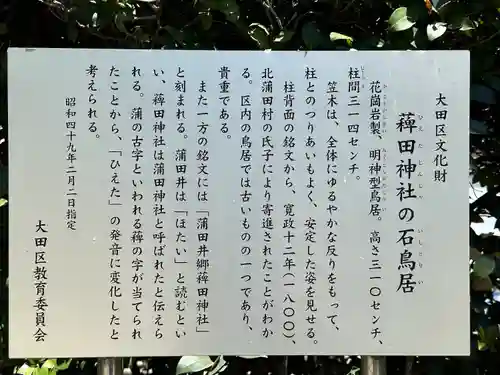 大田区文化財
薭田神社の石鳥居
花崗岩製、明神型鳥居。高さ三一〇センチ、
柱間三一四センチ。
笠木は、全体にゆるやかな反りをもって、
柱とのつりあいもよく、安定した姿を見せる。
柱背面の銘文から、寛政十二年（一八〇〇）、
北蒲田村の氏子により寄進されたことがわか
る。区内の鳥居では古いものの一つであり、
貴重である。
また一方の銘文には「蒲田井郷薭田神社」
と刻まれる。蒲田井は「ほたい」と読むとい
い、薭田神社は蒲田神社と呼ばれたと伝えら
れる。蒲の古字といわれる薭の字が当てられ
たことから、「ひえた」の発音に変化したと
考えられる。
昭和四十九年二月二日指定
大田区教育委員会